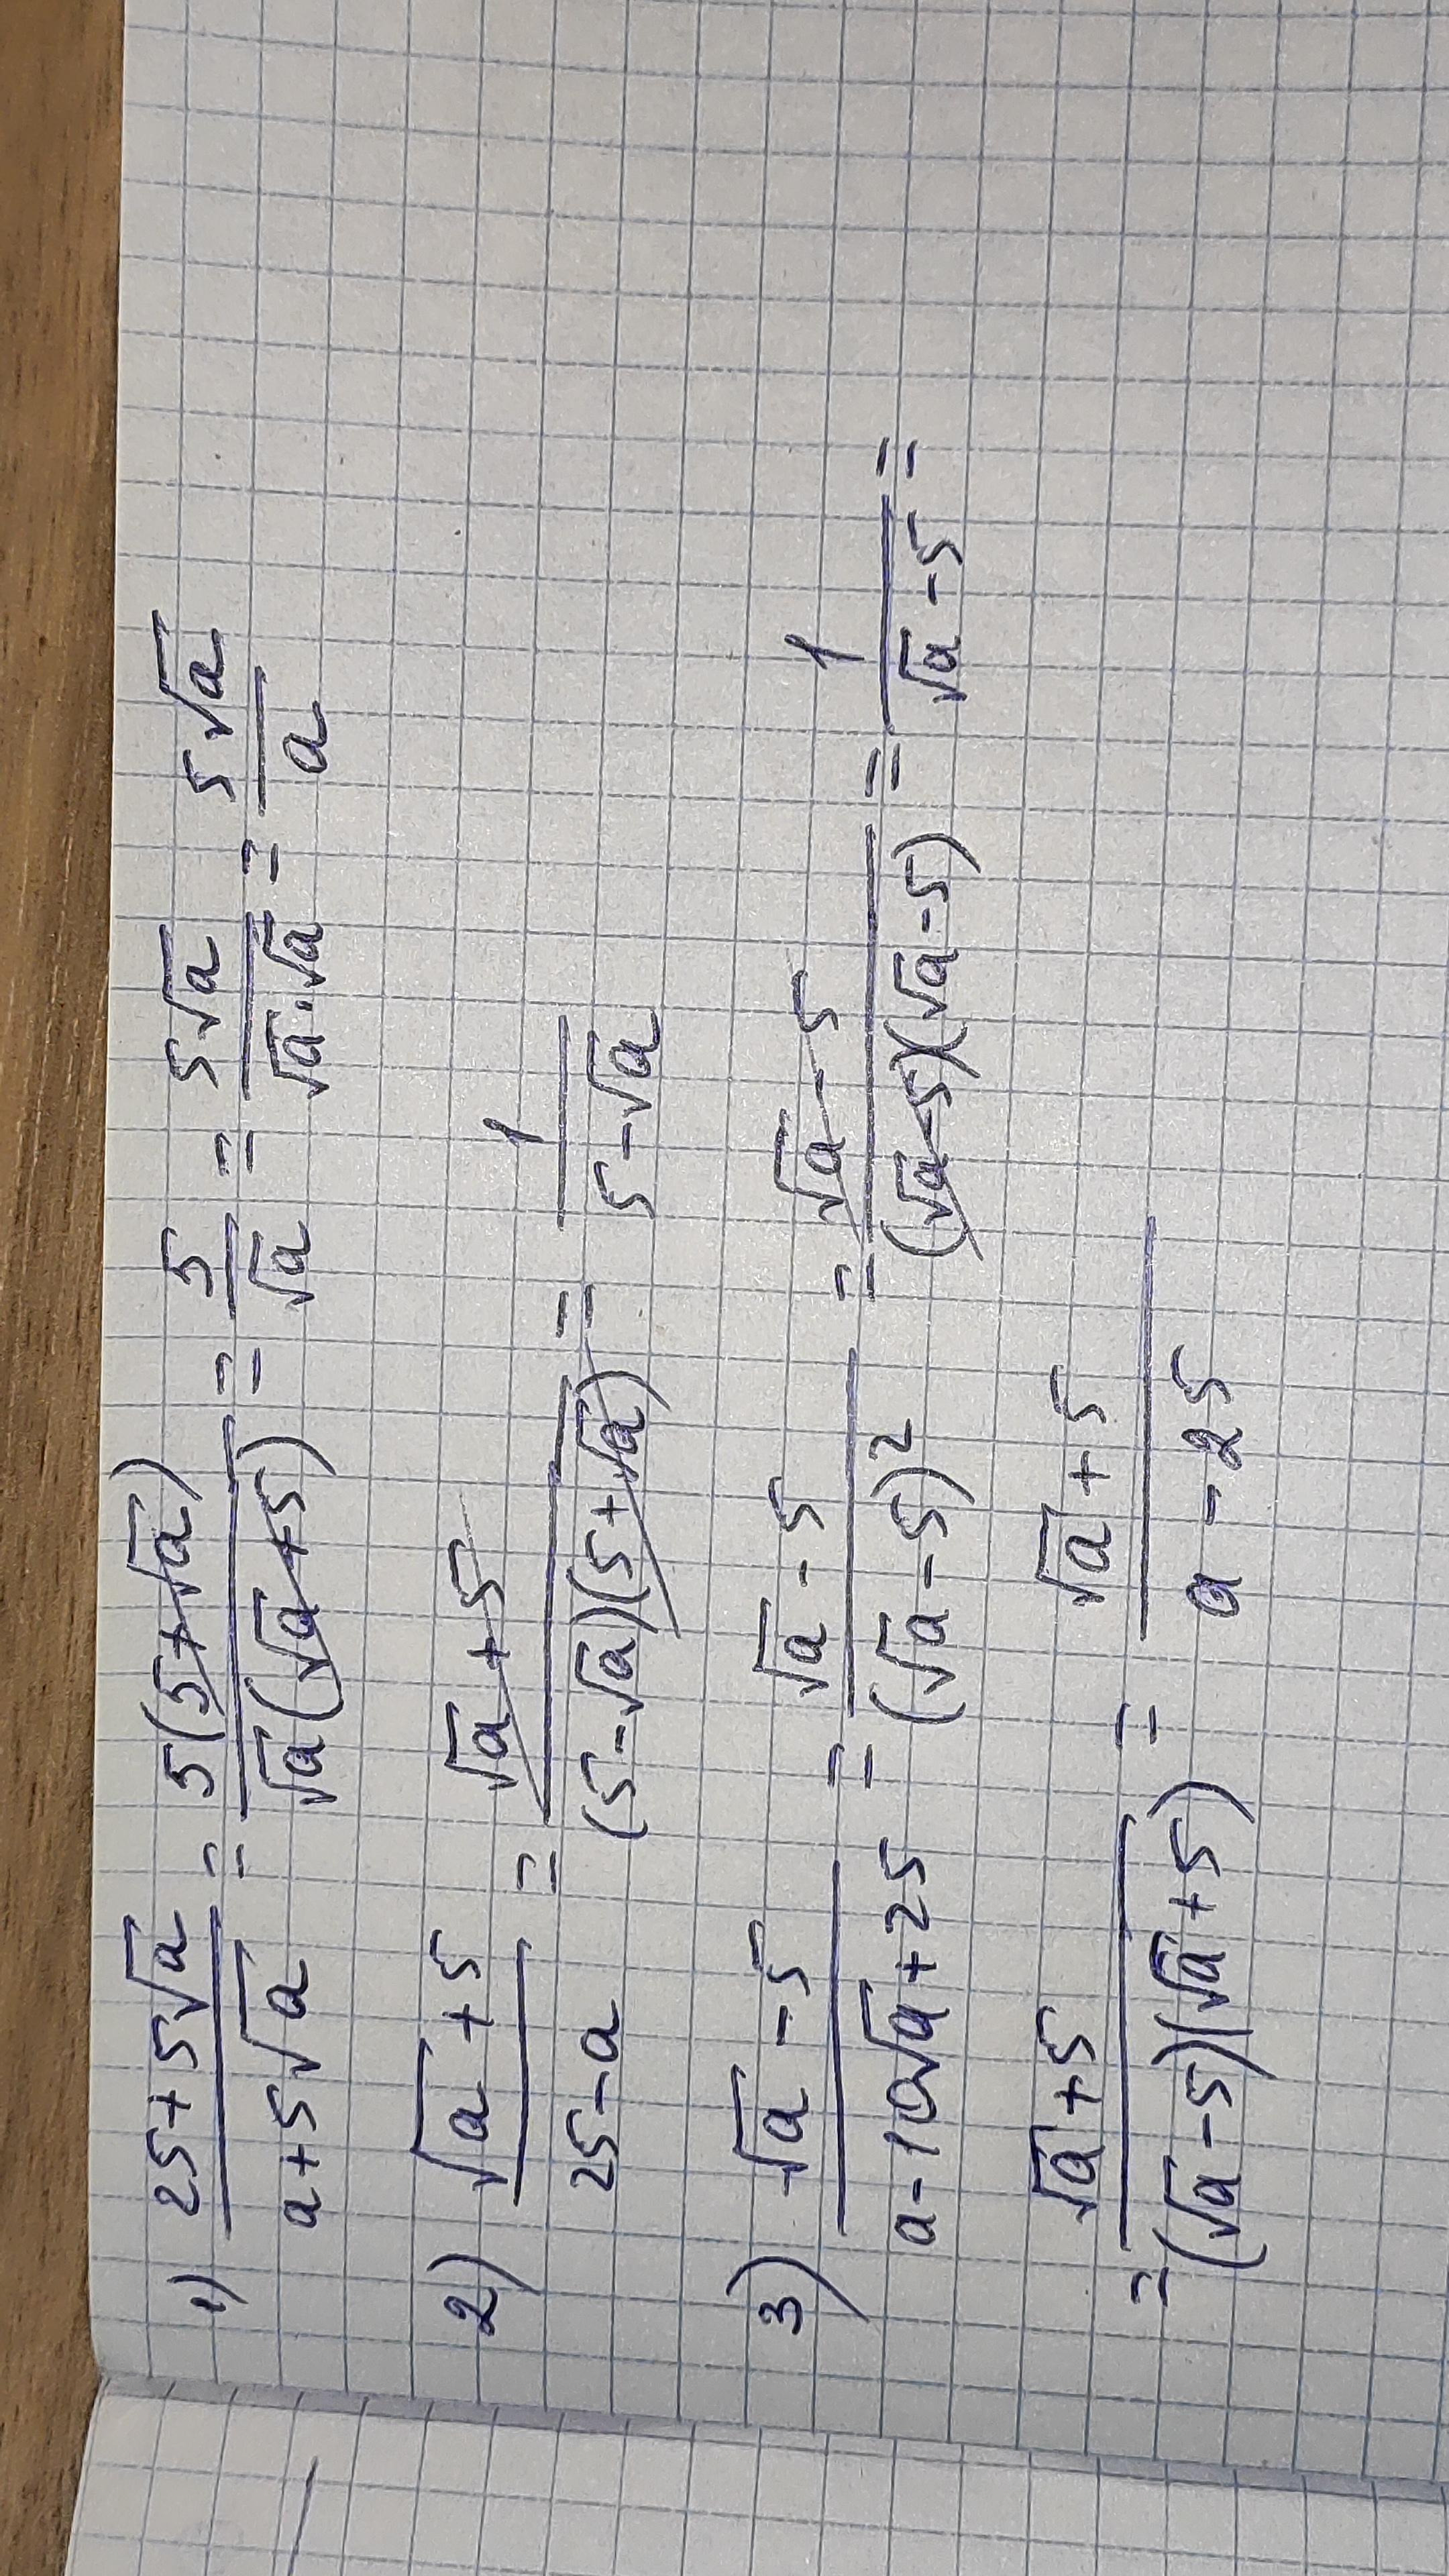 1) (25+5√a)/(a+5√a) = 5(5+√a)/(√a(√a+5)) = 5/√a = 5√a/(√a·√a) = 5√a/a
2) (√a+5)/(25-a) = (√a+5)/((5-√a)(5+√a)) = 1/(5-√a)
3) (√a-5)/(a-10√a+25) = (√a-5)/(√a-5)² = (√a-5)/((√a-5)(√a-5)) = 1/(√a-5) =
= (√a+5)/((√a-5)(√a+5)) = (√a+5)/(a-25)